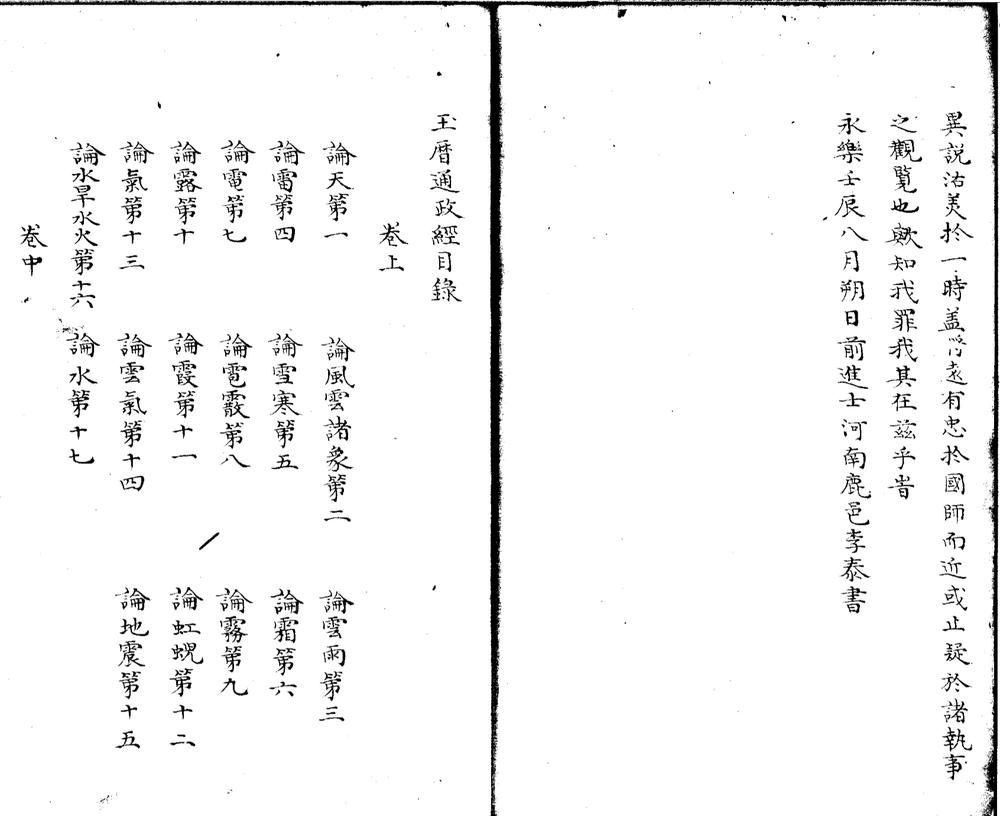 異說沽美扵一時盖將遠有忠扵國師而近或止疑於諸執事
之觀覽也歟知我罪我其在茲乎旹
永樂壬辰八月朔日前進士河南鹿邑李泰書
玉曆通政經目錄
卷上
論天第一　論風雲諸象第二　論雲雨第三
論雷第四　論雪寒第五　論霜第六
論電第七　論雹霰第八　論霧第九
論露第十　論霞第十一　論虹蜺第十二
論氣第十三　論雲氣第十四　論地震第十五
論水旱水火第十六　論水第十七
卷中